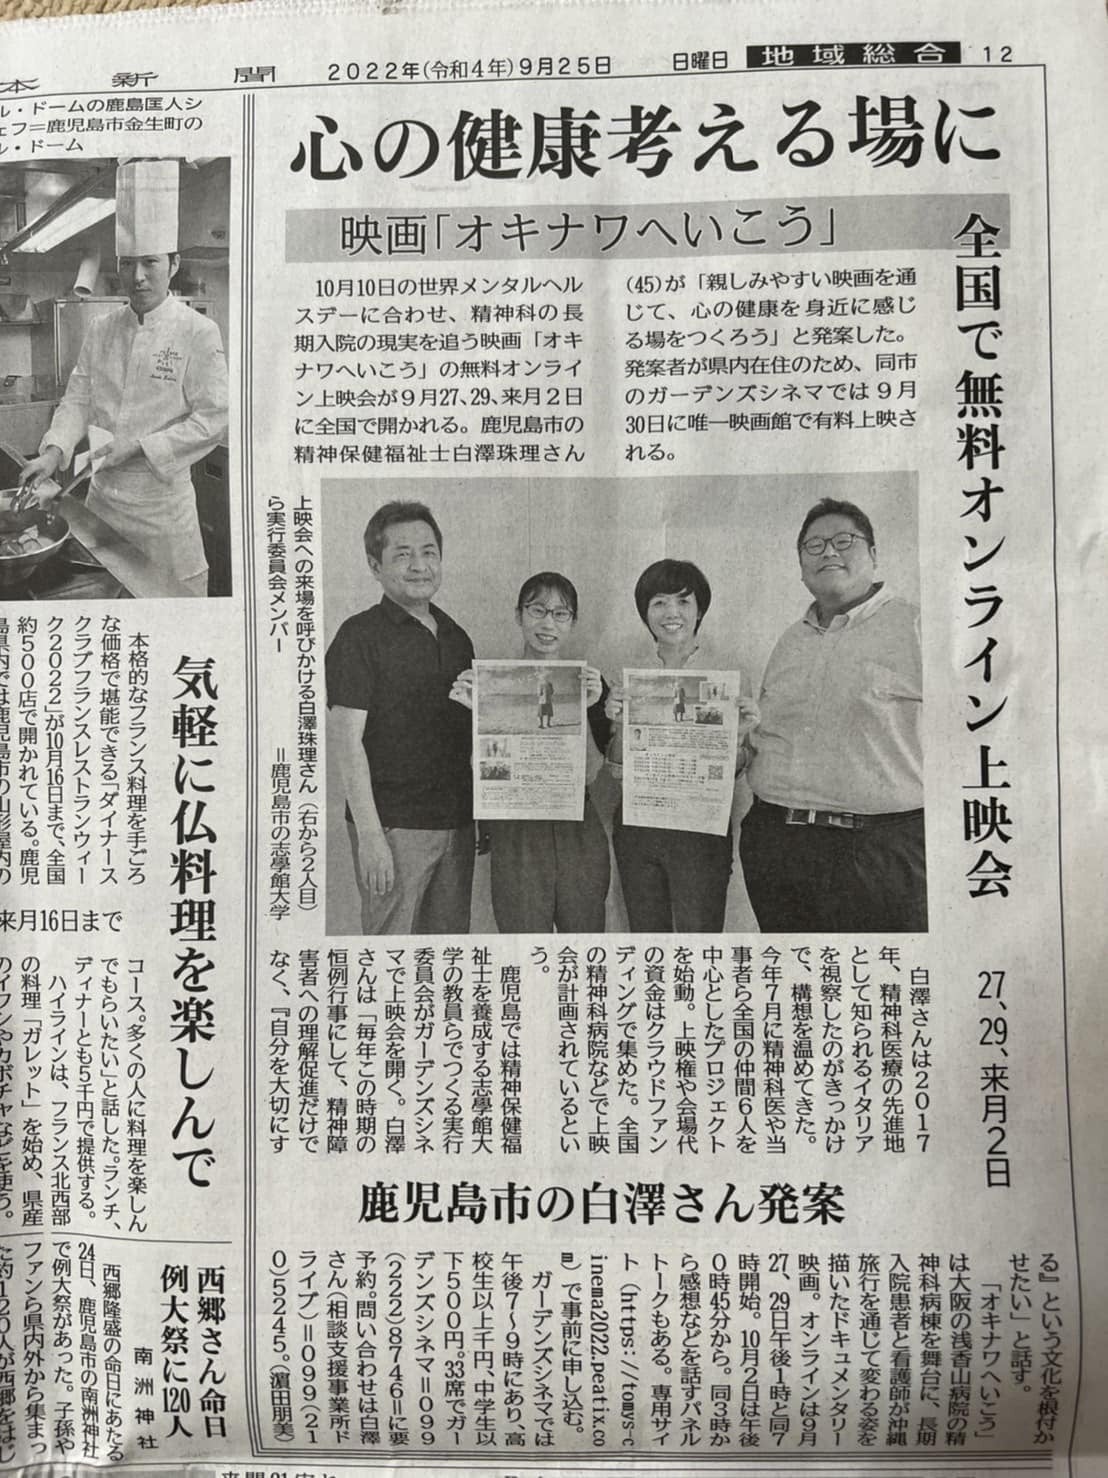 本新聞
2022年(令和4年)9月25日
日曜日
地域総合
12
心の健康考える場に
映画「オキナワへいこう」
全国で無料オンライン上映会
27、29、来月2日
10月10日の世界メンタルヘル
スデーに合わせ、精神科の長
期入院の現実を追う映画「オキ
ナワへいこう」の無料オンライ
ン上映会が9月27、29、来月2日
に全国で開かれる。鹿児島市の
精神保健福祉士白澤珠理さん
(45)が「親しみやすい映画を通
じて、心の健康を身近に感じ
る場をつくろう」と発案した。
発案者が県内在住のため、同市
のガーデンズシネマでは9月
30日に唯一映画館で有料上映さ
れる。
上映会への来場を呼びかける白澤珠理さん(右から2人目)
ら実行委員会メンバー
=鹿児島市の志學館大学
白澤さんは2017
年、精神科医療の先進地
として知られるイタリア
を視察したのがきっかけ
で、構想を温めてきた。
今年7月に精神科医や当
事者ら全国の仲間6人を
中心としたプロジェクト
を始動。上映権や会場代
の資金はクラウドファン
ディングで集めた。全国
の精神科病院などで上映
会が計画されているとい
う。
鹿児島では精神保健福
祉士を養成する志學館大
学の教員らでつくる実行
委員会がガーデンズシネ
マで上映会を開く。白澤
さんは「毎年この時期の
恒例行事にして、精神障
害者への理解促進だけで
なく、『自分を大切にす
鹿児島市の白澤さん発案
る』という文化を根付か
せたい」と話す。
「オキナワへいこう」
は大阪の浅香山病院の精
神科病棟を舞台に、長期
入院患者と看護師が沖縄
旅行を通じて変わる姿を
描いたドキュメンタリー
映画。オンラインは9月
27、29日午後1時と同7
時開始。10月2日は午後
0時45分から。同3時か
ら感想などを話すパネル
トークもある。専用サイ
ト(https://tomys-c
inema2022.peatix.co
m)で事前に申し込む。
ガーデンズシネマでは
午後7~9時にあり、高
校生以上千円、中学生以
下500円。33席でガー
デンズシネマ=099
(222)8746=に要
予約。問い合わせは白澤
さん(相談支援事業所ド
ライブ)=099(21
0)5245。(濵田朋美)
ル・ドームの鹿島匡人シ
ェフ=鹿児島市金生町の
ル・ドーム
気軽に仏料理を楽しんで
来月16日まで
本格的なフランス料理を手ごろ
な価格で堪能できる「ダイナース
クラブフランスレストランウィー
ク2022」が10月16日まで、全国
約500店で開かれている。鹿児
島県内では鹿児島市の山形屋内の
コース。多くの人に料理を楽しん
でもらいたい」と話した。ランチ、
ディナーとも5千円で提供する。
ハイラインは、フランス北西部
の料理「ガレット」を始め、県産
西郷さん命日
例大祭に120人
南洲神社
西郷隆盛の命日にあたる
24日、鹿児島市の南洲神社
で例大祭があった。子孫や
ファンら県内外から集まっ
た約120人が西郷をはじ